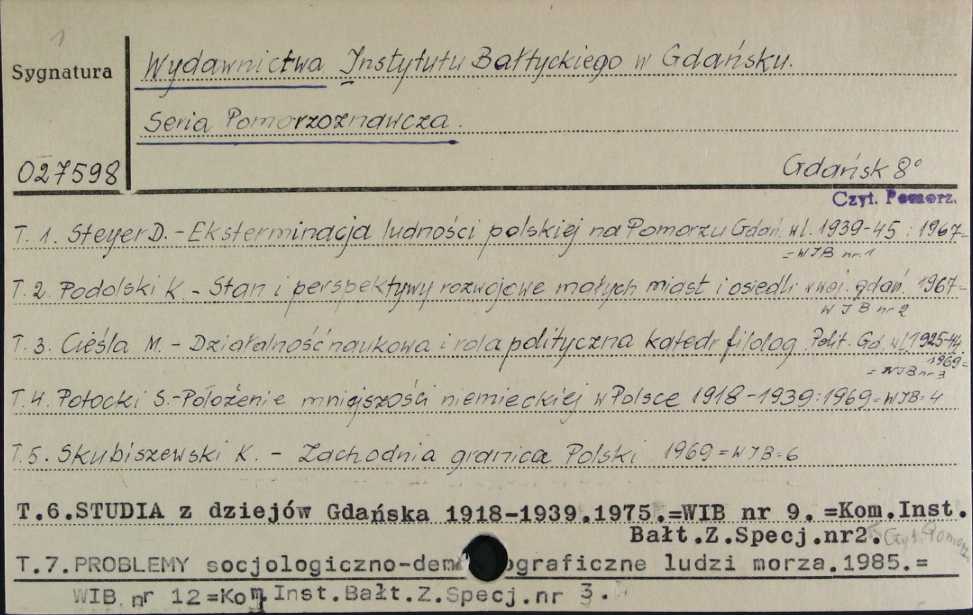 1
Sygnatura
Wydawnictwa Instytutu Bałtyckiego w Gdańsku.
Seria Pomorzoznawcza.
027598
Gdańsk 8°
Czyt. Pomorz.
T. 1. Steyer D. - Eksterminacja ludności polskiej na Pomorzu Gdań. w l. 1939-45 : 1967-
= WIB nr 1
T. 2. Podolski K. - Stan i perspektywy rozwojowe małych miast i osiedli woj. gdań. 1967-
WIB nr 2
T. 3. Cieśla M. - Działalność naukowa i rola polityczna katedr filolog. Polit. Gd. w l. 1925-44
1969=
= WIB nr 3
T. 4. Potocki S. - Położenie mniejszości niemieckiej w Polsce 1918-1939:1969=WIB=4
T. 5. Skubiszewski K. - Zachodnia granica Polski 1969=WIB=6
T.6.STUDIA z dziejów Gdańska 1918-1939.1975.=WIB nr 9.=Kom.Inst.
Bałt.Z.Specj.nr2.
Czyt. Pomorz.
T.7.PROBLEMY socjologiczno-demograficzne ludzi morza.1985.=
WIB nr 12=Kom.Inst.Bałt.Z.Specj.nr 3.